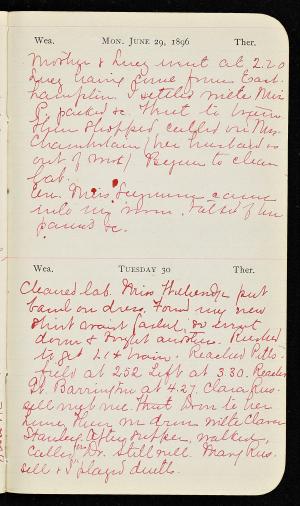 Wea. MON. JUNE 29, 1896 Ther.
Mother & Lucy went at 2.20
Lucy having come from East-
hampton. I settled with Miss
P. packed &c. Went to town.
Then shopped, called on Mrs.
Chamberlain (her husband is
out of work) Began to clean
lab.
Eve. Miss Seymour came
into my room. Talked of her
&c.
Wea. TUESDAY 30 Ther.
Cleaned lab. Miss put
band on dress. Found my new
shirt waist faded, so sent
down & another. Rushed
to get train. Reached Pitts-
field at 2.52 Left at 3.30. Reached
Gt. Barrington at 4.27. Clara Rus-
sell met me. Went down to her
home, then on drive with Clara
Stanley. After supper, walked,
called for Dr. still ill. Mary Rus-
sell & I played duetts.